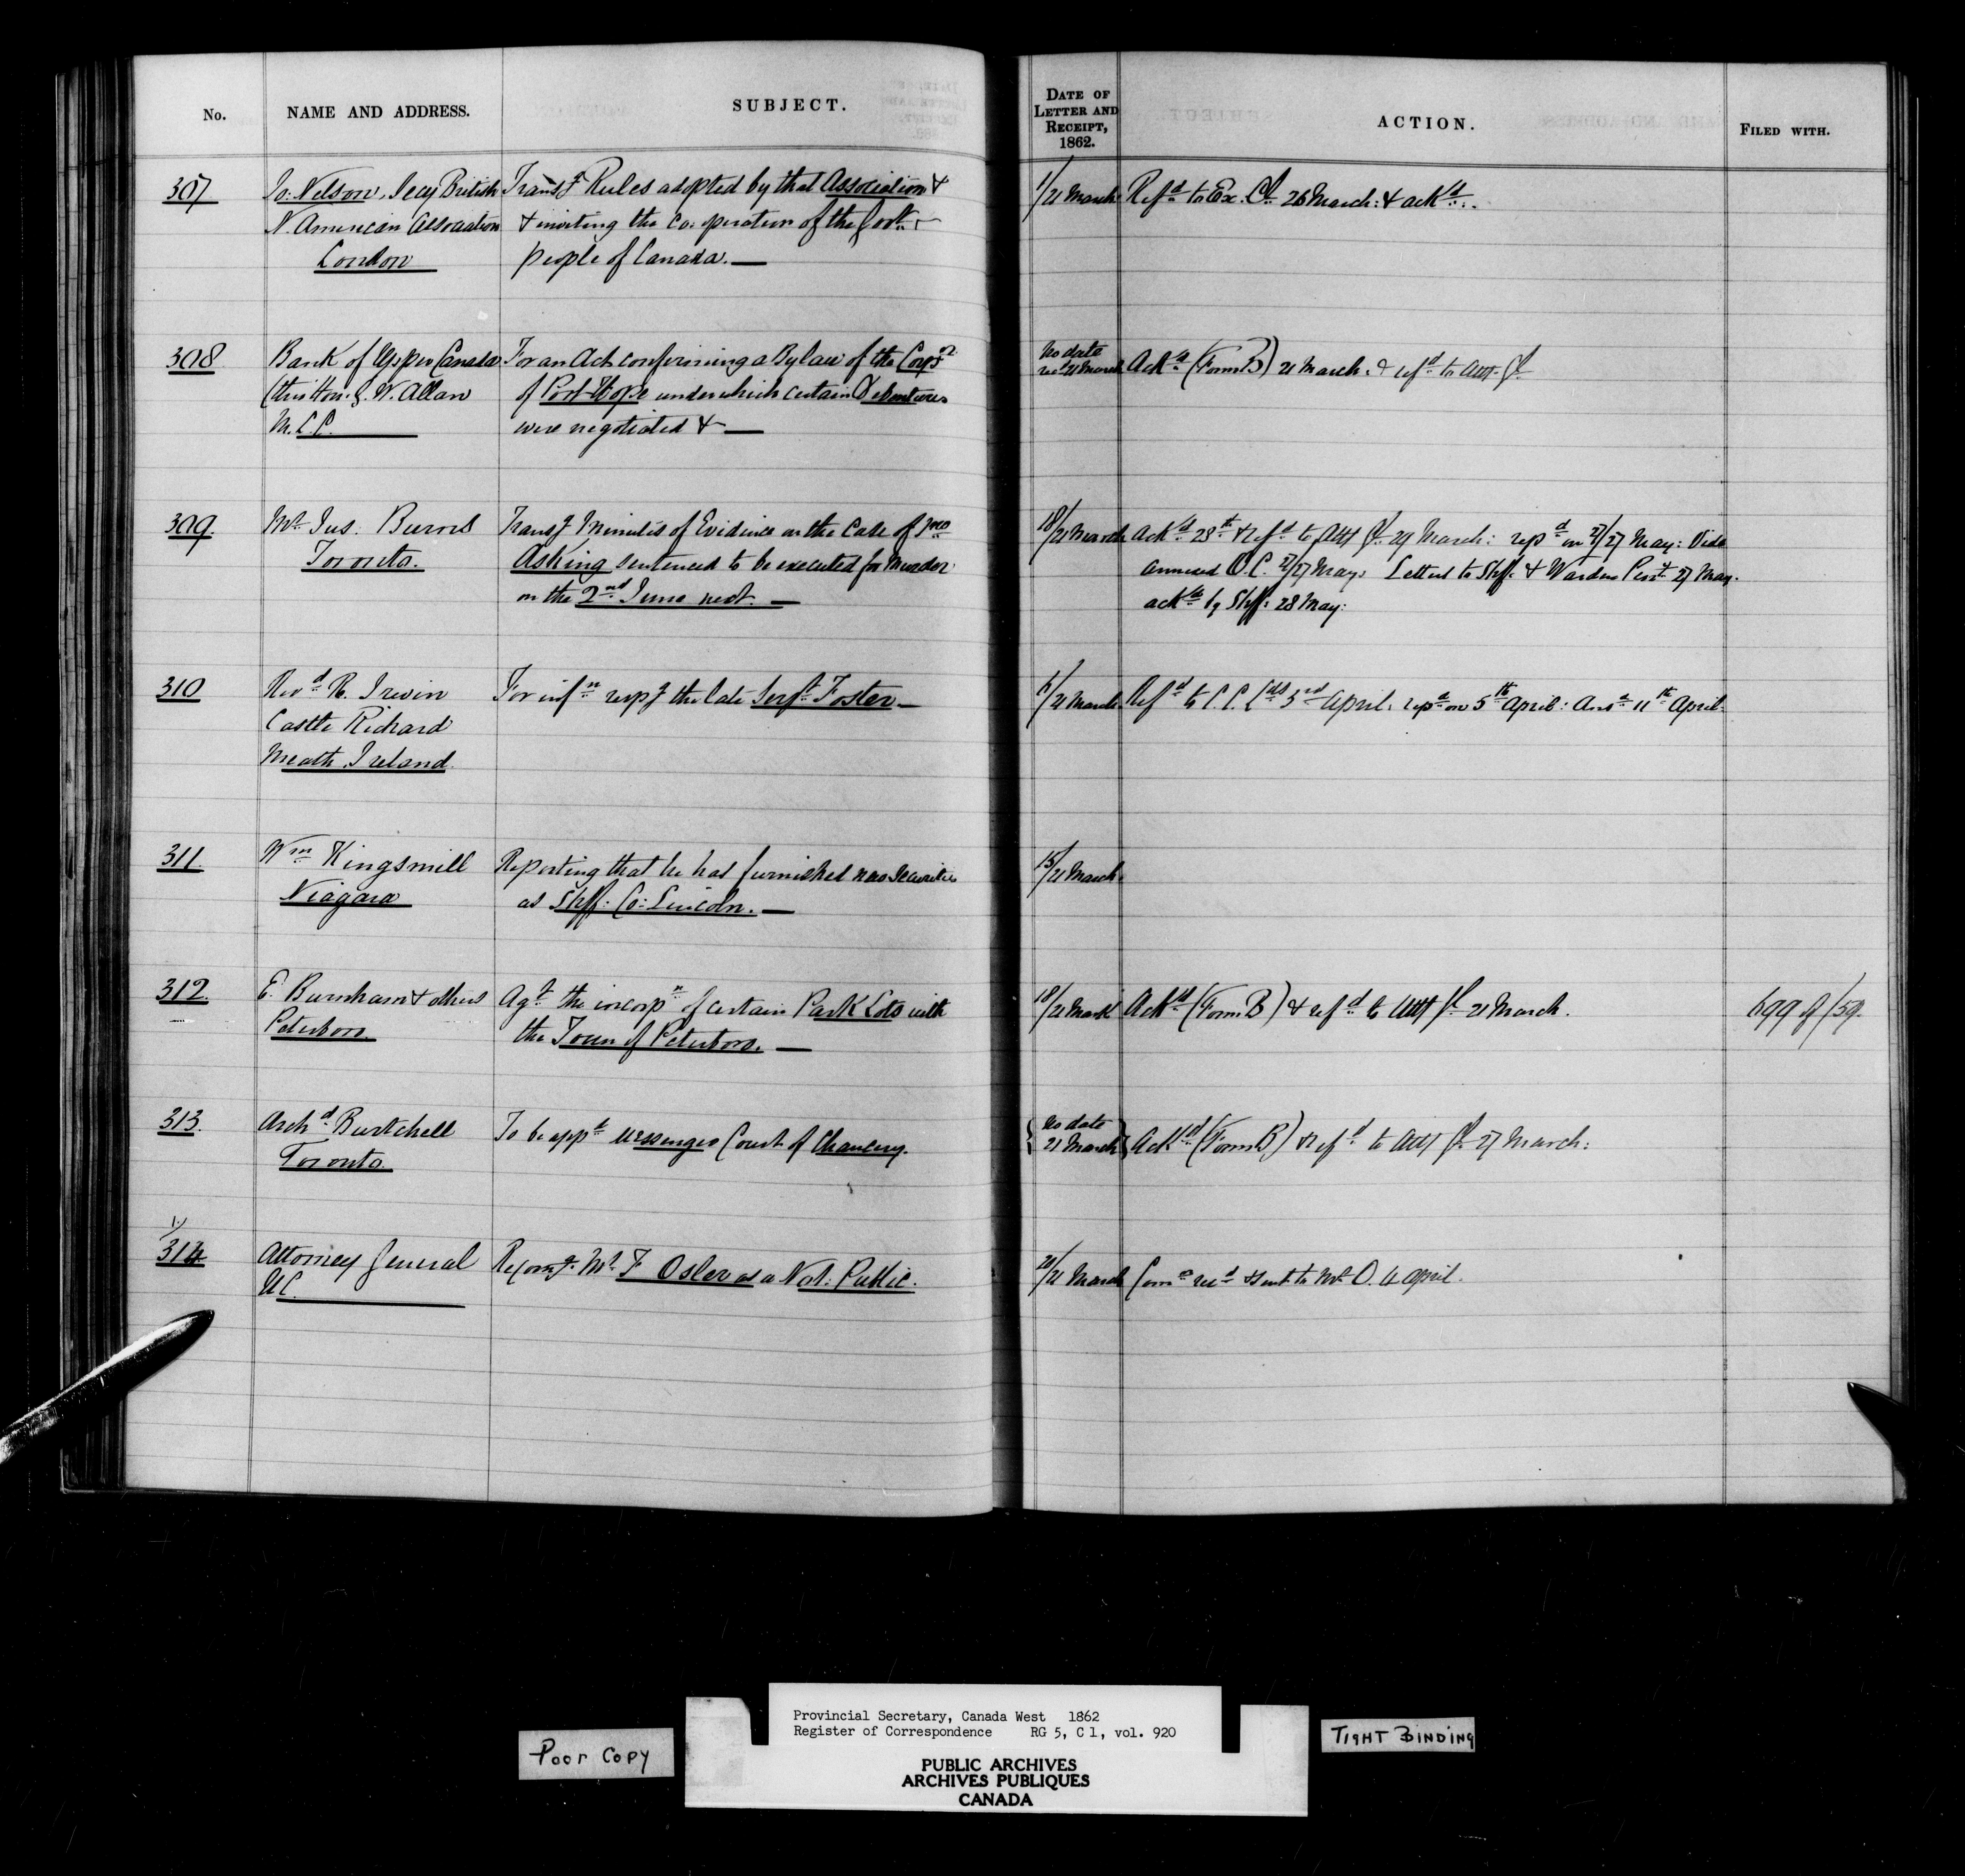 No.
NAME AND ADDRESS.
SUBJECT.
DATE OF
LETTER AND
RECEIPT,
1862.
ACTION.
FILED WITH.
307
Jo: Nelson, Secy British
N. American Association
London
Transg Rules adopted by that Association &
& inviting the co. operation of the Govt. &
people of Canada. —
1/21 March
Refd to Ex. Cl 26 March: & ackd.
308
Bank of Upper Canada
(thro Hon: G. W. Allan
M.L.C.
For an Act confirming a Bylaw of the Corpn
of Port Hope under which certain Debentures
were negotiated & —
No date
recd 21 March
Ackd (Form B) 21 March. & refd to Atty Gl.
309.
Mr Jus. Burns
Toronto.
Transg Minutes of Evidence on the Case of Jno
Asking sentenced to be executed for Murder
on the 2nd June next. —
18/21 March
Ackd 28th & refd to Atty Gl 29 March: repd on 27/27 May: Vide
annexed O.C. 27/27 May. Letters to Shff. & Warden Peny 27 May.
ackd by Shff: 28 May:
310
Revd R. Irwin
Castle Richard
Meath, Ireland.
For infn respg the late Serjt Foster —
6/21 March
Refd to C. C. Lds 3rd April: repd on 5th April: Ansd 11th April.
311.
Wm Kingsmill
Niagara
Reporting that he has furnished new securities
as Shff: Co: Lincoln. —
15/21 March.
312.
E. Burnham & others
Peterboro.
Agt the incorpn of certain Park Lots with
the Town of Peterboro. —
18/21 March
Ackd (Form B) & refd to Atty Gl 21 March.
699 of /59.
313.
Archd Burtchell
Toronto.
To be appd messenger Court of Chancery.
No date
21 March
Ackd (Form B) & refd to Atty Gl 27 March:
1.
314
Attorney General
UC.
Recomg. Mr F Osler as a Not: Public.
20/21 March
Comn recd & sent to Mr O. 4 April.
Poor Copy
Provincial Secretary, Canada West 1862
Register of Correspondence RG 5, C 1, vol. 920
PUBLIC ARCHIVES
ARCHIVES PUBLIQUES
CANADA
TIGHT BINDING